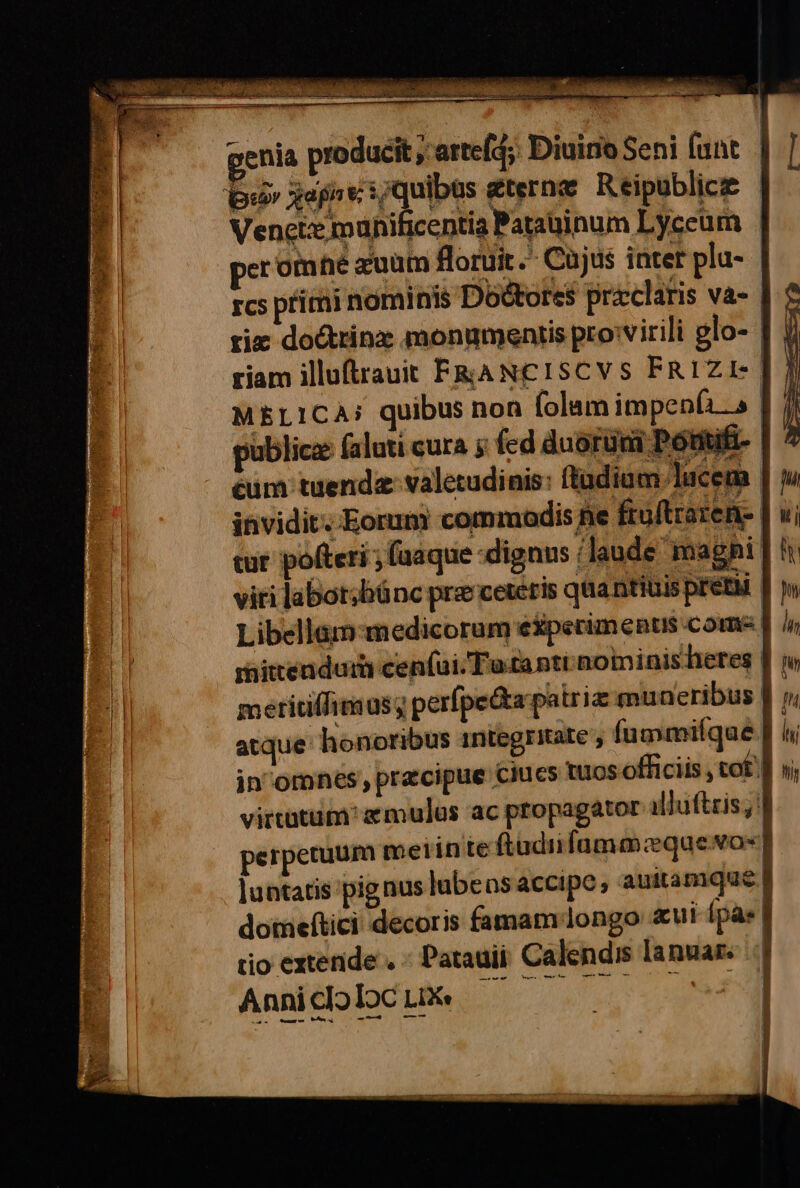 genia producit, arteſq; Diuino Seni ſunt
quibus æternæ Reipublicæ
Venetæ munificentia Patauinum Lyceum
per omne æuum floruit. Cujus inter plu-
res primi nominis Doctores præclaris va-
riæ doctrinæ monumentis pro virili glo-
riam illuſtrauit FRANCISCVS FRIZI-
MELICA; quibus non ſolum impenſa
publicæ ſaluti cura; ſed duorum Pontifi-
cum tuendæ valetudinis: ſtudium lucem
invidit. Eorum commodis ne fruſtraren-
tur poſteri; ſuaque dignus laude magni
viri labor; hunc præ ceteris quantiuis pretii
Libellum medicorum experimentis com-
mittendum cenſui. Tu tanti nominis heres
meritiſſimus; perſpecta patriæ muneribus
atque honoribus integritate, ſummiſque
in omnes, præcipue ciues tuos officiis, tot
virtutum æmulus ac propagator illuſtris,
perpetuum mei in te ſtudii ſummæque vo-
luntatis pignus lubens accipe, auitamque
domeſtici decoris famam longo æui ſpa-
tio extende. Patauii Calendis Ianuar.
Anni cIↃ IↃC LIX.